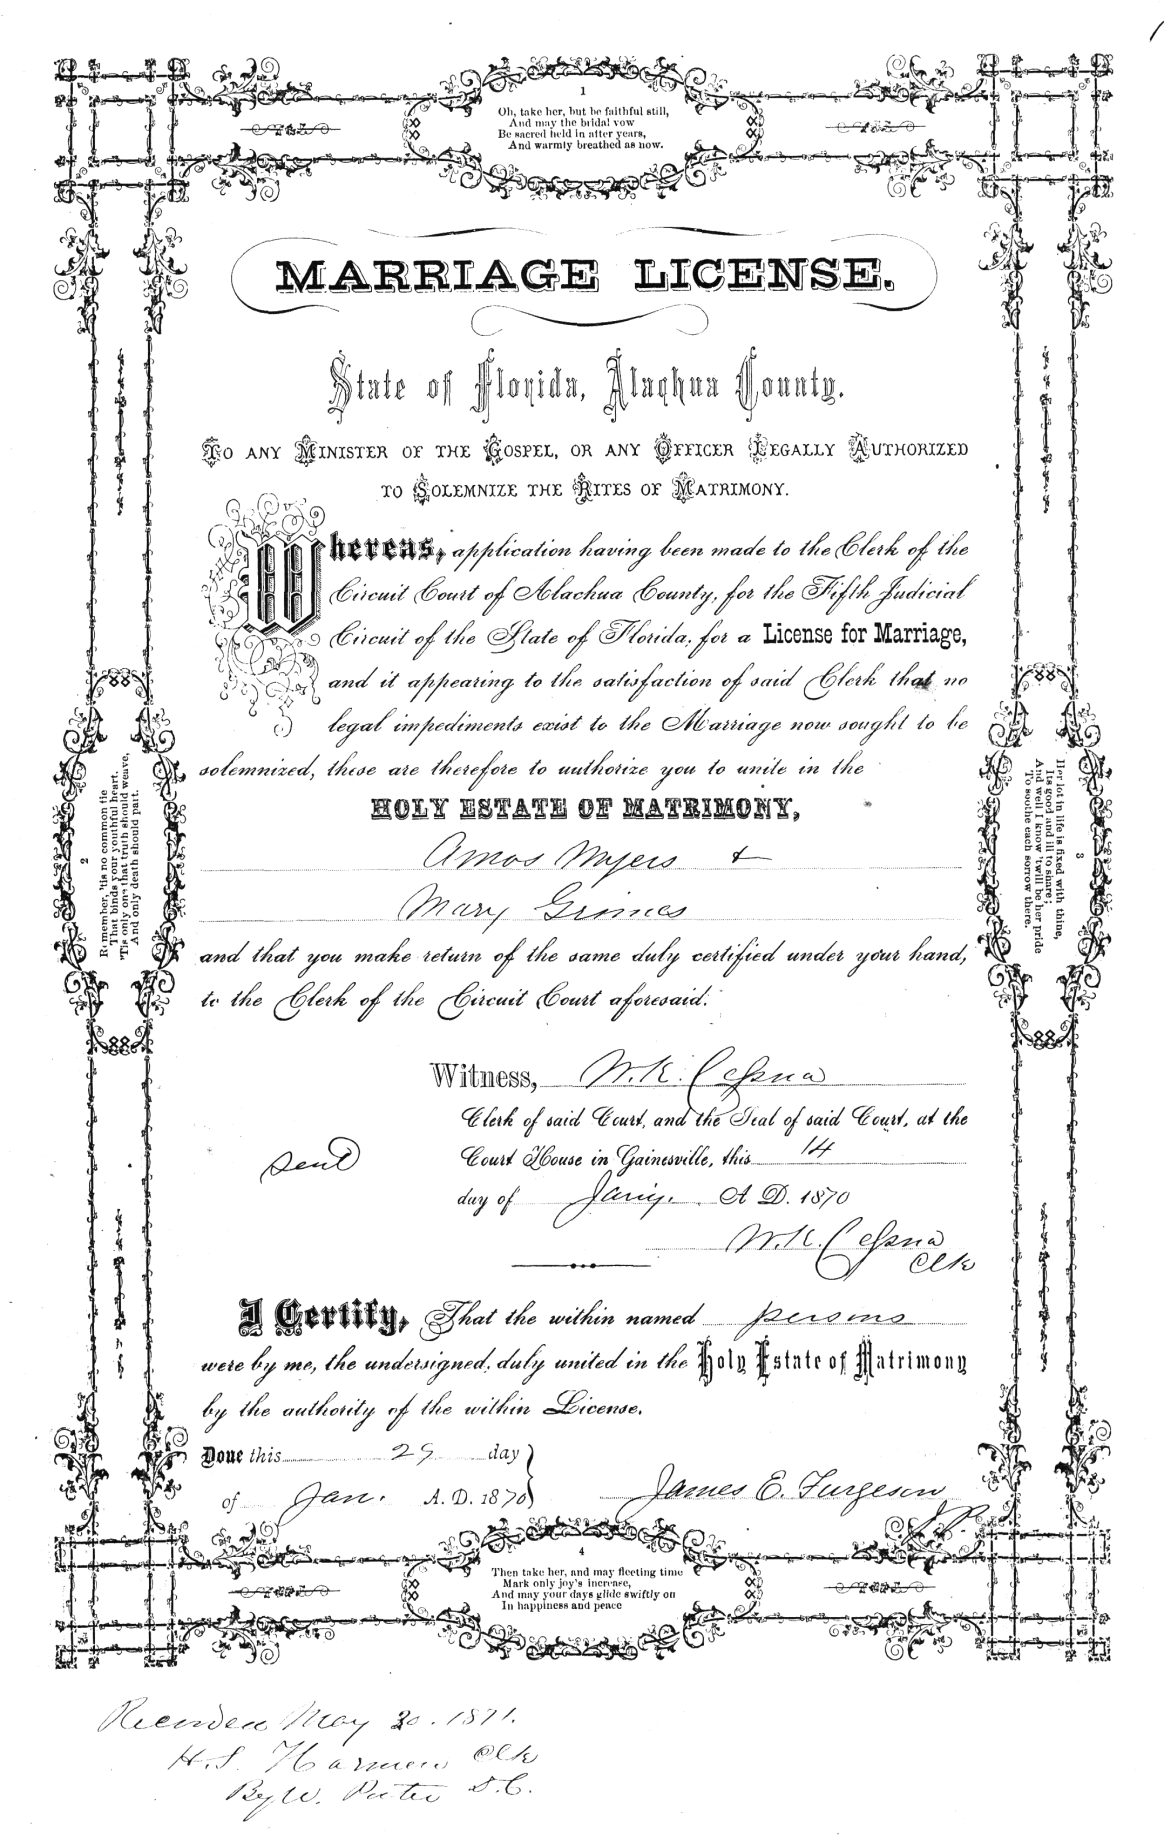 1
Oh, take her, but be faithful still,
And may the bridal vow
Be sacred held in after years,
And warmly breathed as now.
MARRIAGE LICENSE.
State of Florida, Alachua County.
TO ANY MINISTER OF THE GOSPEL, OR ANY OFFICER LEGALLY AUTHORIZED
TO SOLEMNIZE THE RITES OF MATRIMONY.
Whereas, application having been made to the Clerk of the
Circuit Court of Alachua County, for the Fifth Judicial
Circuit of the State of Florida, for a License for Marriage,
and it appearing to the satisfaction of said Clerk that no
legal impediments exist to the Marriage now sought to be
solemnized, these are therefore to authorize you to unite in the
HOLY ESTATE OF MATRIMONY,
Amos Myers &
Mary Grimes
and that you make return of the same duly certified under your hand,
to the Clerk of the Circuit Court aforesaid.
2
Remember, 'tis no common tie
That binds your youthful heart.
'Tis only one that truth should weave,
And only death should part.
3
Her lot in life is fixed with thine,
Its good and ill to share;
And well I know 'twill be her pride
To soothe each sorrow there.
Witness, W. K. Cessna
Clerk of said Court, and the Seal of said Court, at the
Court House in Gainesville, this 14
sent
day of Jany. A D. 1870
W. K. Cessna
Clk
I Certify, That the within named persons
were by me, the undersigned, duly united in the Holy Estate of Matrimony
by the authority of the within License.
Done this 29 day
of Jan. A. D. 1870
James E. Furgeson
J.P.
4
Then take her, and may fleeting time
Mark only joy's increase,
And may your days glide swiftly on
In happiness and peace
Recorded May 30. 1871.
H. S. Harmon Clk
By W. D. C.